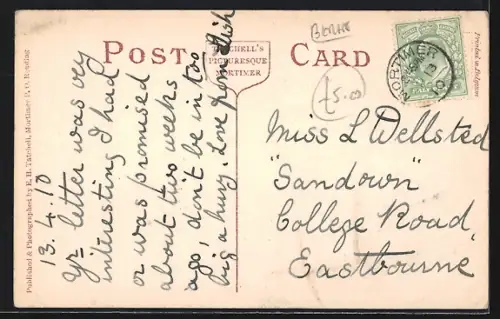 POST CARD
TATCHELL'S
PICTURESQUE
MORTIMER
BERKS
£5.00
MORTIMER
Printed in Belgium
Published & Photographed by E. H. Tatchell, Mortimer P. O. Reading
13.4.10
Yr letter was very
interesting I had
or was promised
about two weeks
ago, don't be in too
big a hurry. Love from
Miss L Wellsted
"Sandown"
College Road,
Eastbourne